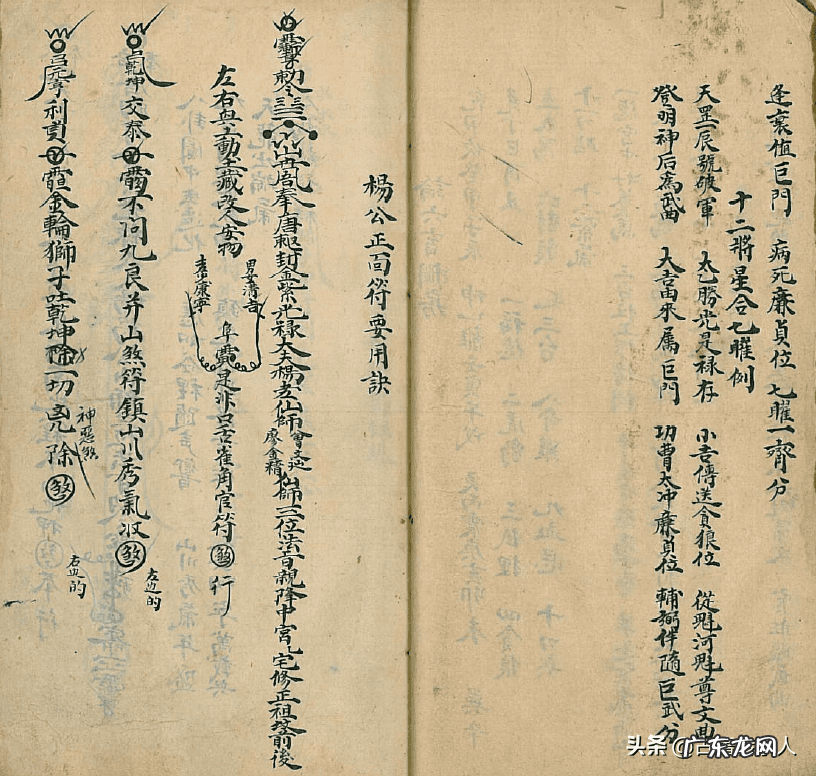 逢衰值巨門 病死廉貞位 七曜一齊分
十二將星合七曜例
天罡一辰號破軍 太乙勝光是禄存 小吉傳送貪狼位 從魁河魁尊文曲
登明神后為武曲 大吉由來属巨門 功曹太冲廉貞位 輔弼伴隨巨武分
楊公正面符要用訣
奉唐敕封金紫光禄大夫楊老仙師曾文辿廖金精仙師三位法旨親降中宮宅修正祖堂前後
左右與工動土藏改入安物 男女清吉 老少康寧 是非口舌雀角官符煞行
乾坤交泰 不问九良并山煞符鎮山川秀氣收煞 左边的
唵吽利貞 金輪獅子吐乾坤除一切兇神惡煞除煞 右边的
头条 @广东龙网人